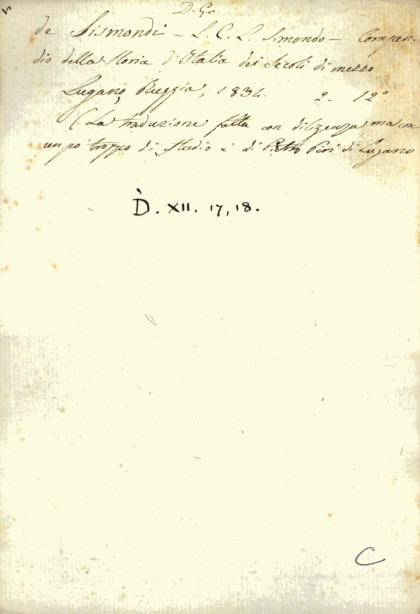 D. G.
de Sismondi – L. C. L. Simondo – Compen-
dio della Storia d'Italia dei Secoli di mezzo
Lugano, Ruggia, 1834. 2. 12°
(La traduzione fatta con diligenza ma con
un po' troppo di studio è di Pietro Peri di Lugano
D. XII. 17, 18.
C